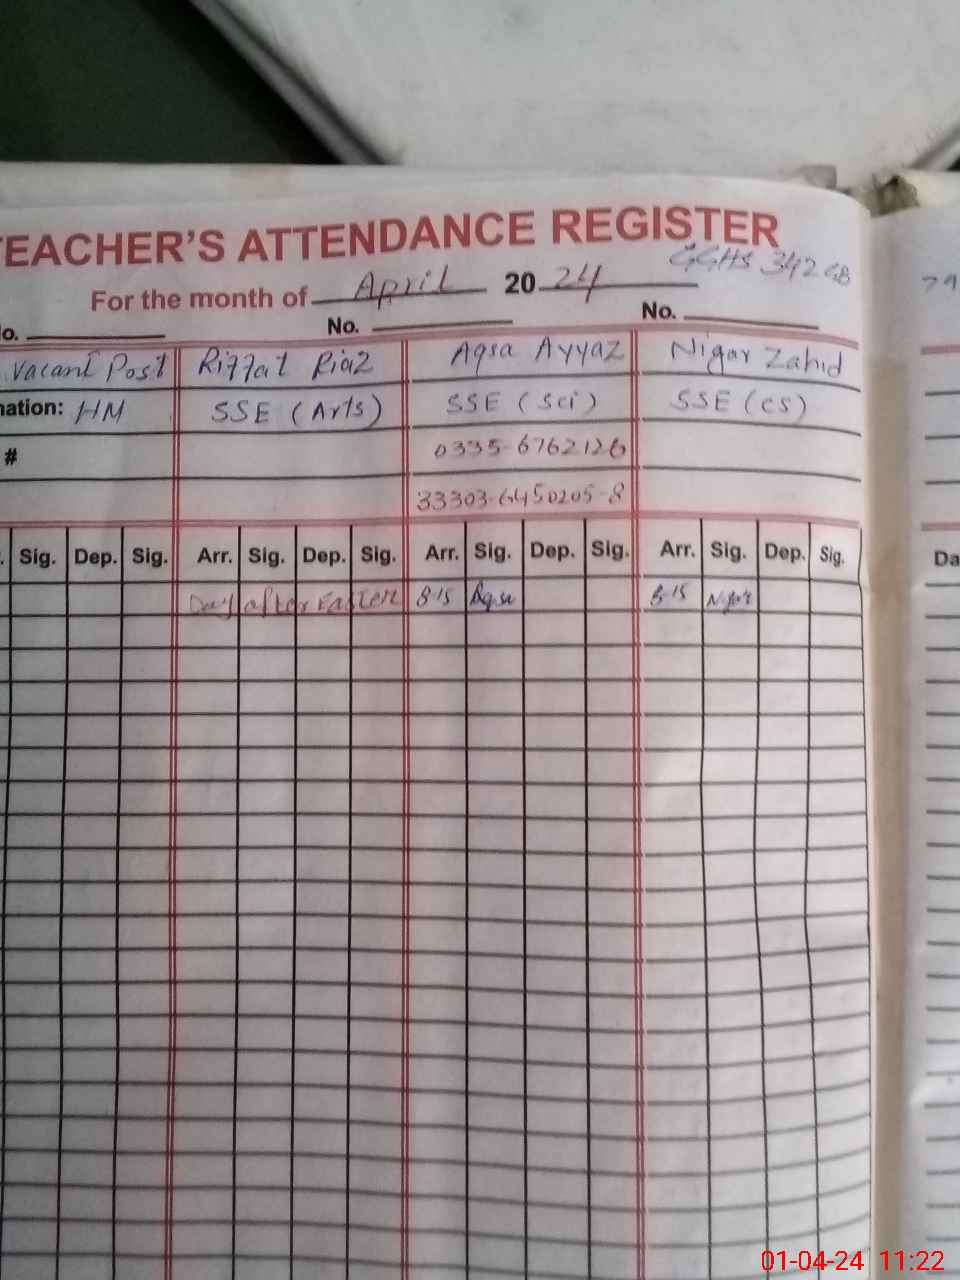 TEACHER'S ATTENDANCE REGISTER
GGHS 342 GB
For the month of April 2024
No. No. No.
Vacant Post Riffat Riaz Aqsa Ayyaz Nigar Zahid
nation: HM SSE (Arts) SSE (Sci) SSE (CS)
# 0335-6762126
33303-6450205-8
Sig. Dep. Sig. Arr. Sig. Dep. Sig. Arr. Sig. Dep. Sig. Arr. Sig. Dep. Sig. Da
Day after Easter 8-15 Aqsa 8-15 Nigar
79
01-04-24 11:22